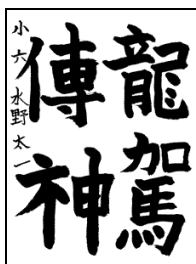 龍駕
傳神
小六 水野太一